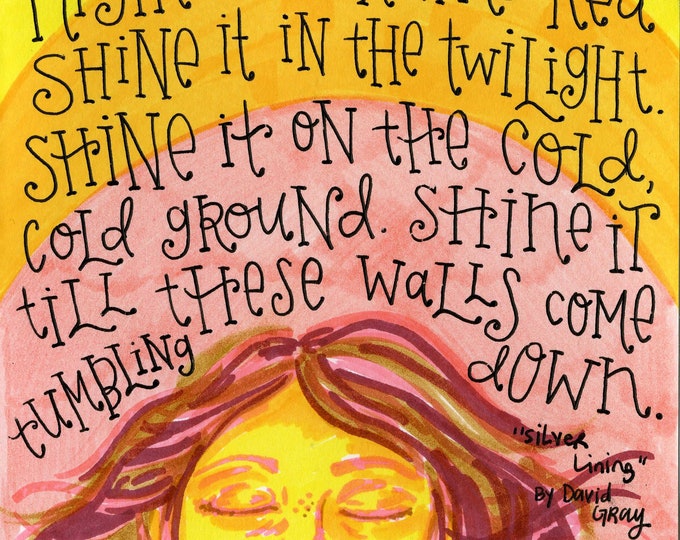 SHINE it IN tHE twiLiGHt.
SHiNE it ON tHE COLd,
COLd GROUNd. SHiNE iT
tiLL tHESE WaLLS COME
tUMBLiNG dOWN.
"SiLVER
Lining"
BY David
GRAY